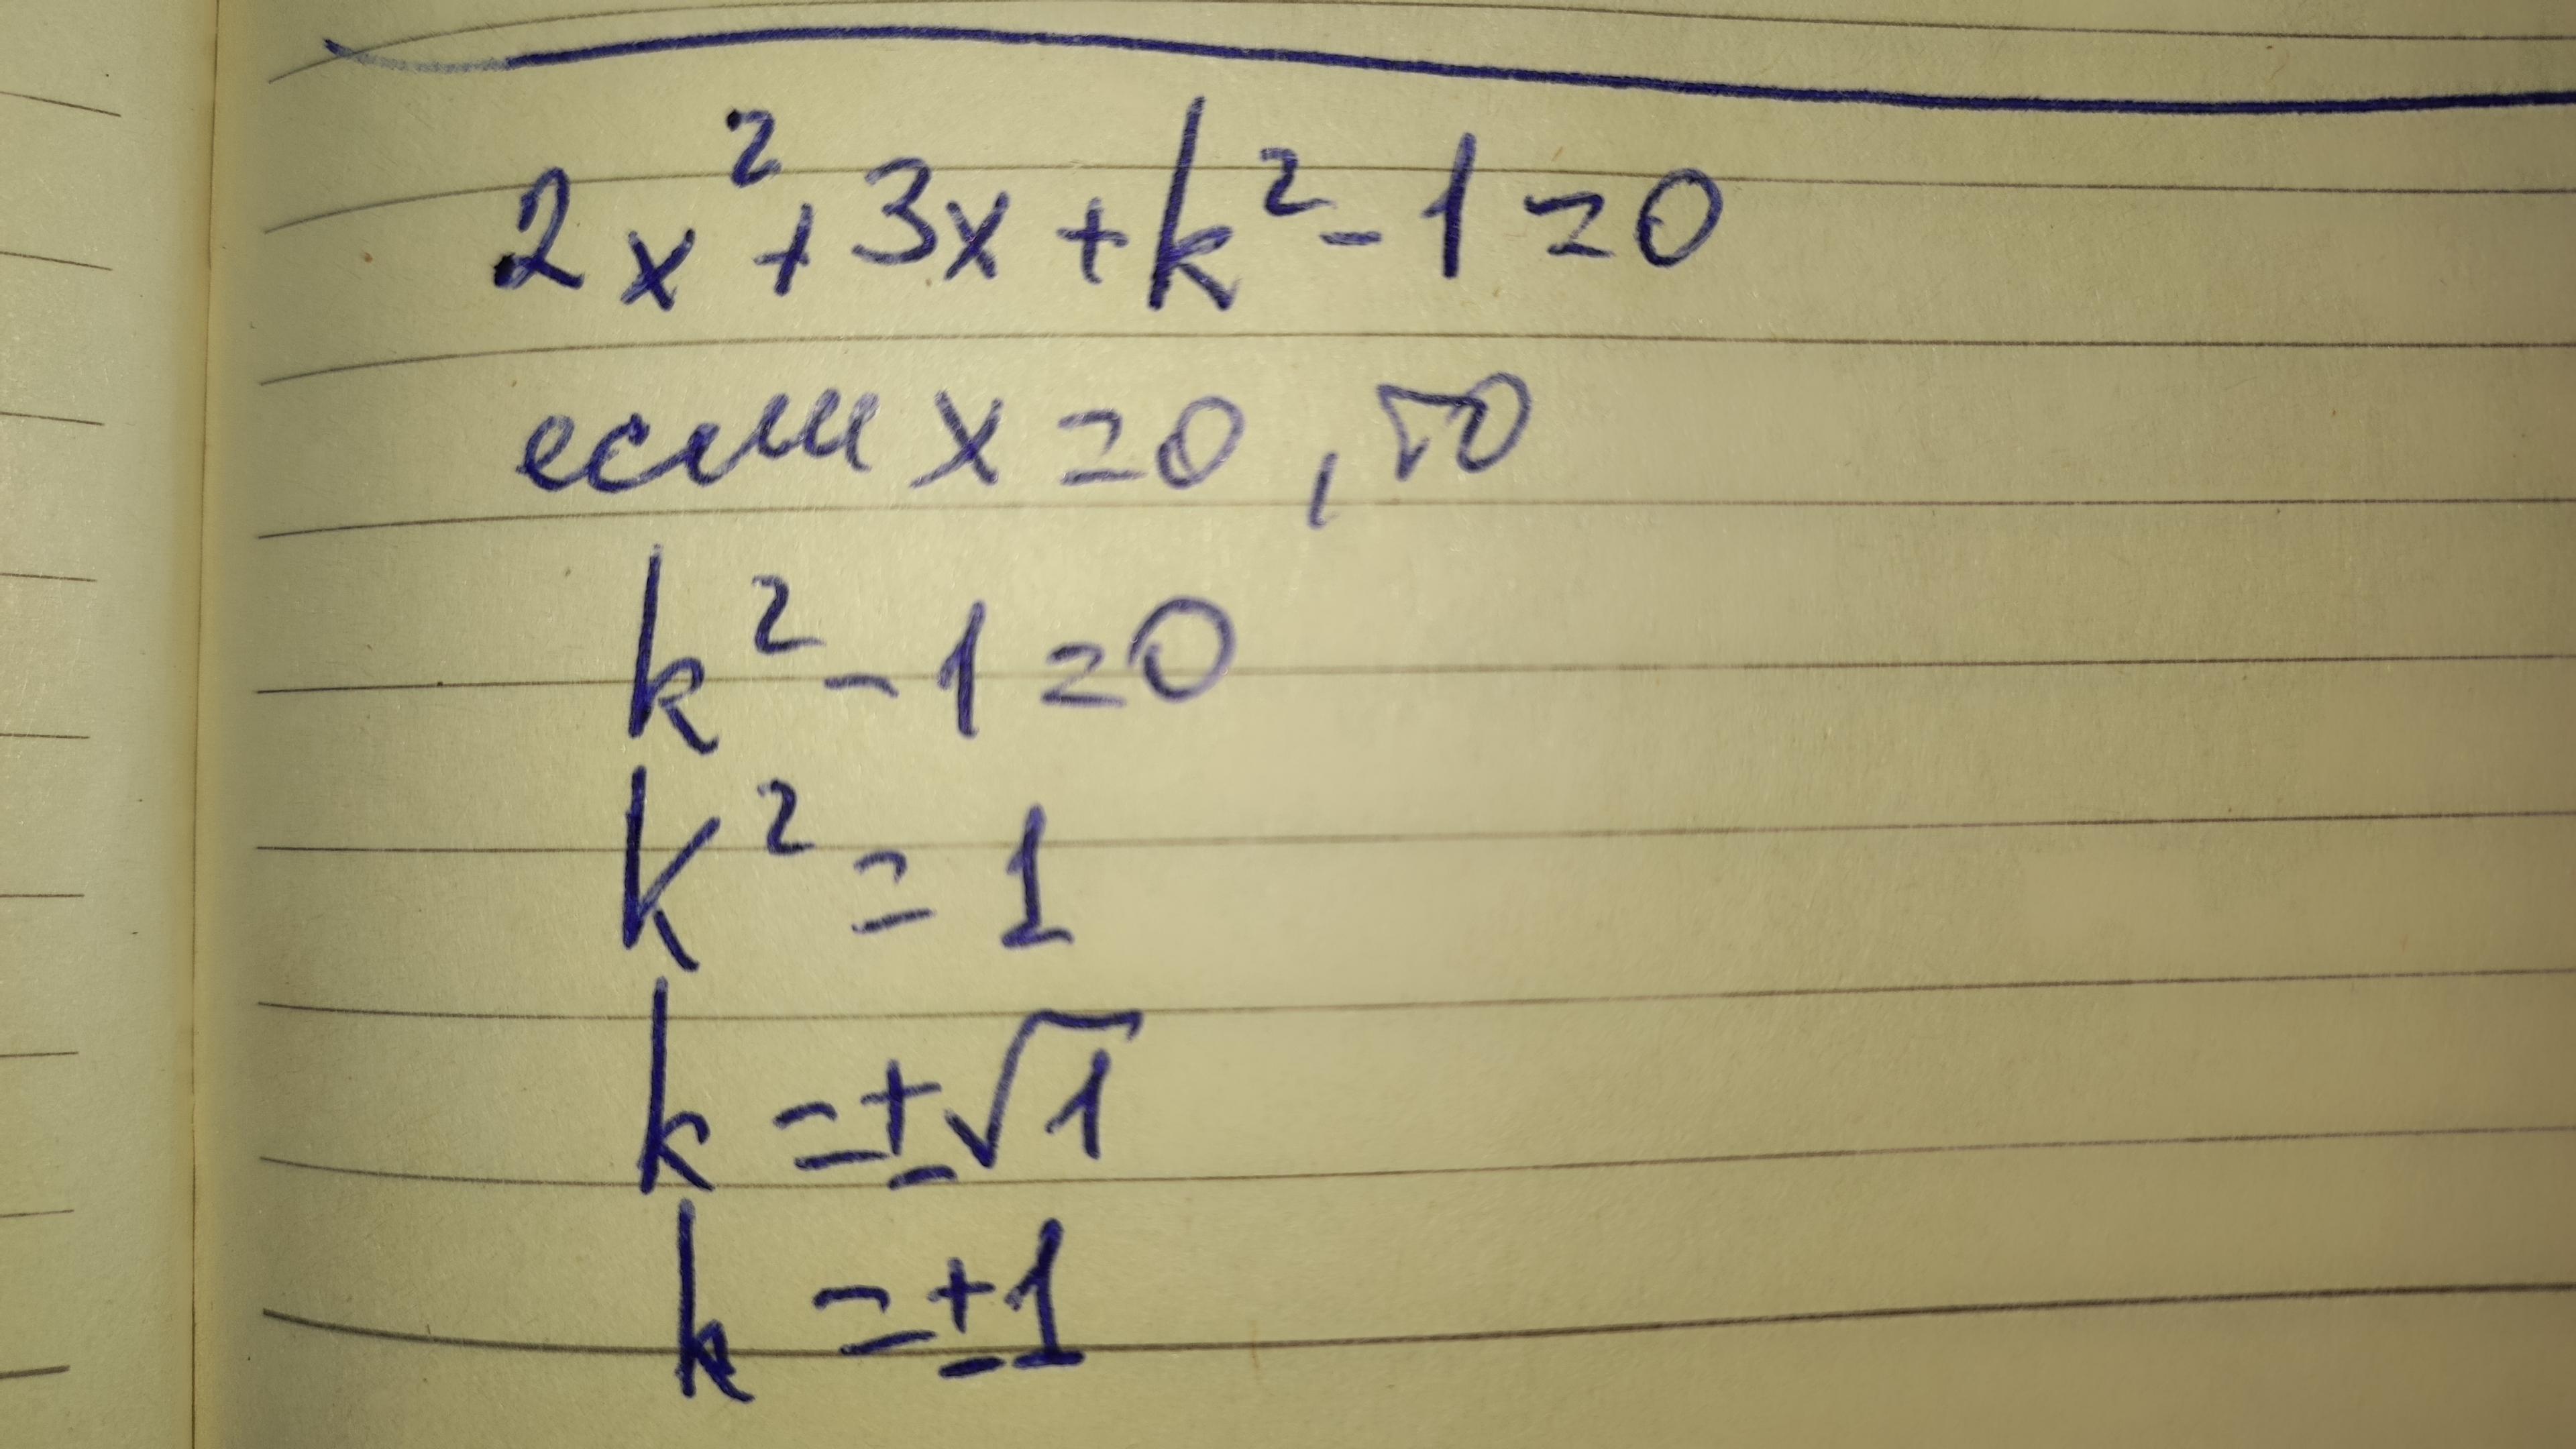 2x²+3x+k²-1=0
если x=0, то
k²-1=0
k²=1
k=±√1
k=±1